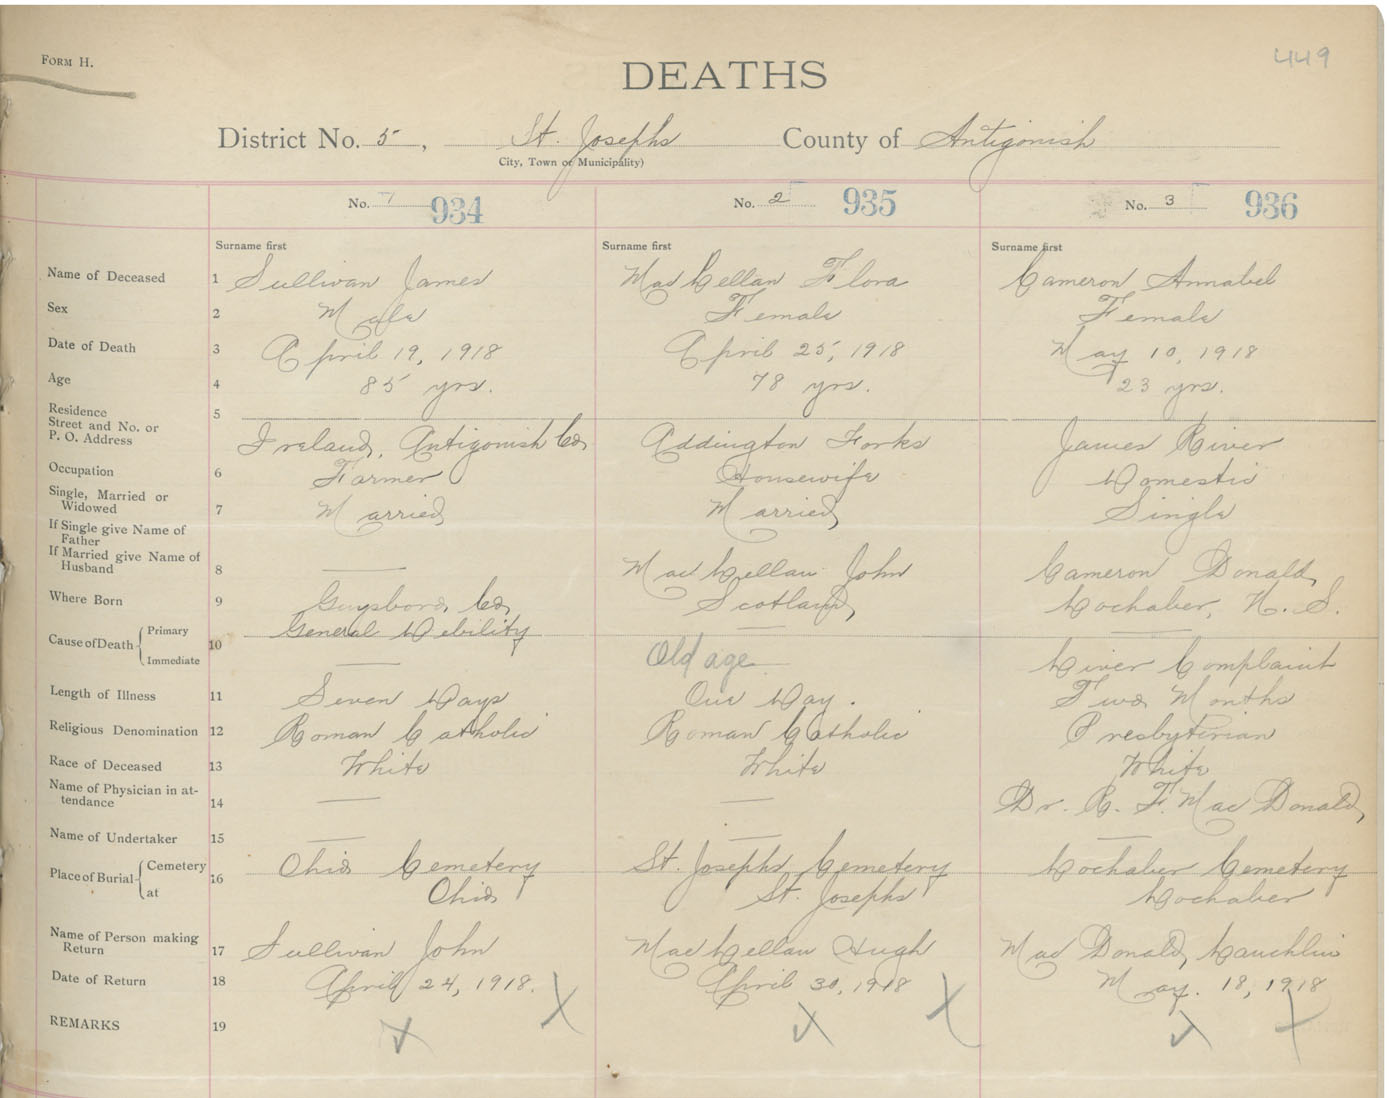 FORM H.
449
DEATHS
District No. 5, St. Josephs County of Antigonish
City, Town or Municipality)
No. 1 934 No. 2 935 No. 3 936
Surname first Surname first Surname first
Name of Deceased 1 Sullivan James MacLellan Flora Cameron Annabel
Sex 2 Male Female Female
Date of Death 3 April 19, 1918 April 25, 1918 May 10, 1918
Age 4 85 yrs. 78 yrs. 23 yrs.
Residence 5
Street and No. or
P. O. Address Ireland, Antigonish Co. Addington Forks James River
Occupation 6 Farmer Housewife Domestic
Single, Married or
Widowed 7 Married Married Single
If Single give Name of
Father
If Married give Name of
Husband 8 MacLellan John Cameron Donald
Where Born 9 Guysboro Co. Scotland Lochaber, N. S.
Cause of Death Primary General Debility
10
Immediate Old age Liver Complaint
Length of Illness 11 Seven Days One Day. Two Months
Religious Denomination 12 Roman Catholic Roman Catholic Presbyterian
Race of Deceased 13 White White White
Name of Physician in at-
tendance 14 Dr. R. F. MacDonald
Name of Undertaker 15
Place of Burial Cemetery 16 Ohio Cemetery St. Josephs Cemetery Lochaber Cemetery
at Ohio St. Josephs Lochaber
Name of Person making
Return 17 Sullivan John MacLellan Hugh MacDonald, Lauchlin
Date of Return 18 April 24, 1918. April 30, 1918 May. 18, 1918
REMARKS 19